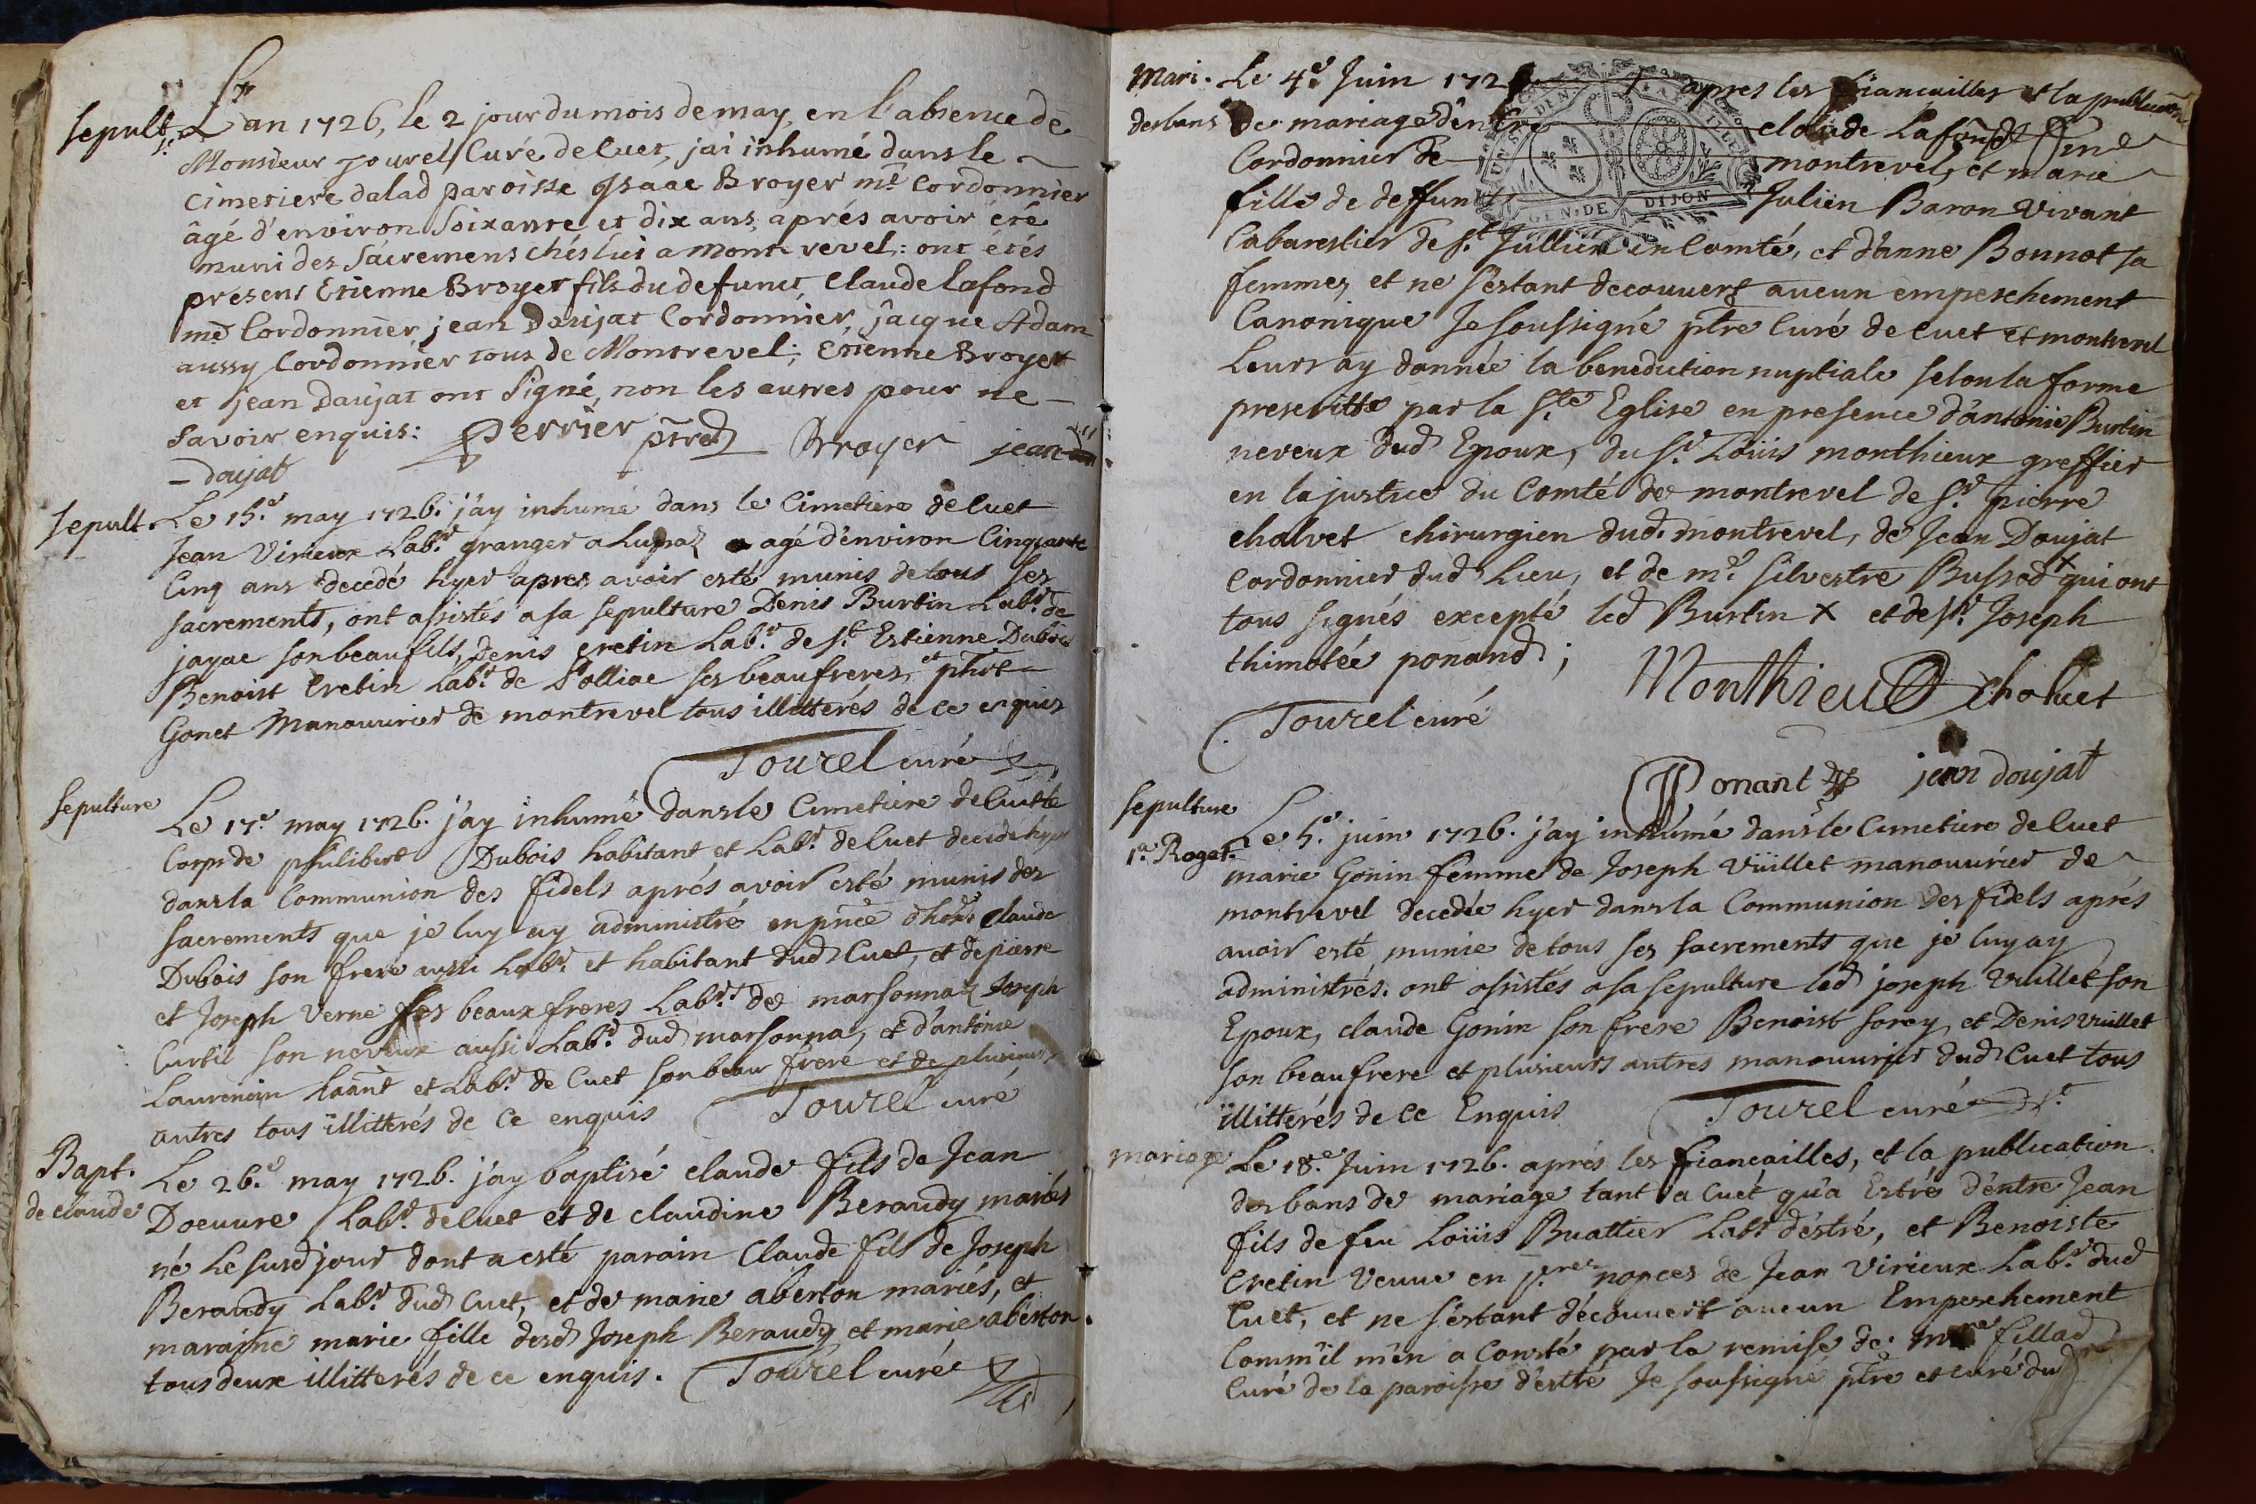 Sepult.
L'an 1726, le 2 jour du mois de may, en l'absence de
Monsieur Tourel Curé de Cuet, j'ai inhumé dans le
Cimetiere dalad paroisse Isaac Broyer mᵉ Cordonnier
âgé d'environ Soixante et dix ans, aprés avoir été
muni des Sácremens chés lui a Mont-revel: ont étés
présens Etienne Broyer fils du defunct, Claude Lafond
mᵉ Cordonnier, jean Daujat Cordonnier, jacque Adam
aussy Cordonnier tous de Montrevel; Etienne Broyer
et jean Daujat ont Signé, non les autres pour ne
savoir enquis: Perrier ptre Broyer jean
doujat
Sepult.
Le 15.ᵉ may 1726. j'ay inhumé dans le Cimetiere de Cuet
Jean Virieux Lab.ʳ granger a agé d'environ Cinquante
Cinq ans decedé hyer apres avoir esté munis de tous ses
sacrements, ont assistés a sa sepulture Denis Burtin Lab.ʳ de
jayac son beaufils, Denis cretin Lab.ʳ de S.ᵗ Estienne Dubois
Benoist Cretin Lab.ʳ de Polliac ses beaufreres, et phit
Gonet Manouvrier de montrevel tous illitterés de ce enquis
Tourel curé
Sepulture
Le 17.ᵉ may 1726. j'ay inhumé dans le Cimetiere de Cuet le
Corps de philibert Dubois habitant et Lab.ʳ de Cuet decédé hyer
dans la Communion des fidels aprés avoir esté munis des
sacrements que je luy ay administré en pnce d'hon. Claude
Dubois son frere aussi Lab.ʳ et habitant dud Cuet, et de pierre
et Joseph Verne ses beaux freres Lab.ʳˢ de marsonnaz Joseph
Curtil son neveux aussi Lab.ʳ dud marsonna, et d'antoine
Laurencin haant et Lab.ʳ de Cuet son beau frere et de plusieurs
autres tous illitterés de Ce enquis Tourel curé
Bapt.
de claude
Le 26.ᵉ may 1726. j'ay baptisé claude fils de Jean
Doeuvre Lab.ʳ de Cuet et de claudine Beraudy mariés
né Le susd jour dont a esté parain Claude fils de Joseph
Beraudy Lab.ʳ dud Cuet, et de marie aberton mariés, et
maraine marie fille desd Joseph Beraudy et marie aberton.
tous deux illitterés de ce enquis. Tourel curé
Mari.
Le 4.ᵉ Juin 172 apres les fiancailles et la publication
des bans de mariage d'entre claude Lafond
Cordonnier de montrevel, et marie
fille de deffunt Julien Baron Vivant
Cabarestier de S.ᵗ Jullien en Comté, et d'anne Bonnot sa
femmes et ne s'estant decouvers aucun empeschement
Canonique Je soussigné ptre Curé de Cuet et montrevel
Leurs ay donnée la benediction nuptiale selon la forme
prescritte par la S.ᵗᵉ Eglise en presence d'antoine Burtin
neveux dud Epoux, du S.ʳ Loüis monthieux greffier
en la justice du Comté de montrevel de S.ʳ pierre
chalvet chirurgien dud. montrevel, de Jean Doujat
Cordonnier dud Lieu, et de m.ᵉ silvestre Bussod x qui ont
tous signés excepté led Burtin x et de S.ʳ Joseph
thimotée ponand;
Monthieux chalvet
Tourel curé
Ponant jean doujat
Sepulture
1.ᵃ Rogat.
Le 5.ᵉ juin 1726. j'ay inhumé dans le Cimetiere de Cuet
marie Gonin femme de Joseph Vüillet manouvrier de
montrevel decedée hyer dans la Communion des fidels aprés
avoir esté munie de tous ses sacrements que je luy ay
administrés. ont assistés a sa sepulture led joseph Vuillet son
Epoux, claude Gonin son frere Benoist sorey, et Denis vuillet
son beaufrere et plusieurs autres manouvrier dud Cuet tous
illitterés de Ce Enquis Tourel curé
mariage
Le 18.ᵉ Juin 1726. aprés les fiancailles, et la publication
des bans de mariage tant a Cuet qu'a Estré d'entre Jean
fils de feu Loüis Buattier Lab.ʳ d'estré, et Benoiste
Cretin Veuve en p.ʳᵉˢ nopces de Jean Virieux Lab.ʳ dud
Cuet, et ne s'estant découvert aucun Empeschement
Comm'il m'en a Consté par la remise de fillad
Curé de la paroisse d'estré Je soussigné ptre et curé dud
GEN. DE DIJON